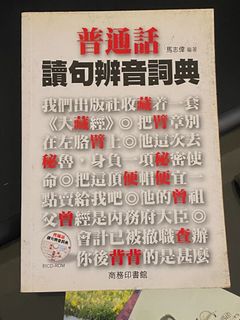 普通話
馬志偉 編著
讀句辨音詞典
我們出版社收藏着一套
《大藏經》◎把臂章別
在左胳臂上◎他這次去
秘魯，身負一項秘密使
命◎把這頂便帽便宜一
點賣給我吧◎他的曾祖
父曾經是內務府大臣◎
會計已被撤職查辦
你後背背的是甚麼
商務印書館